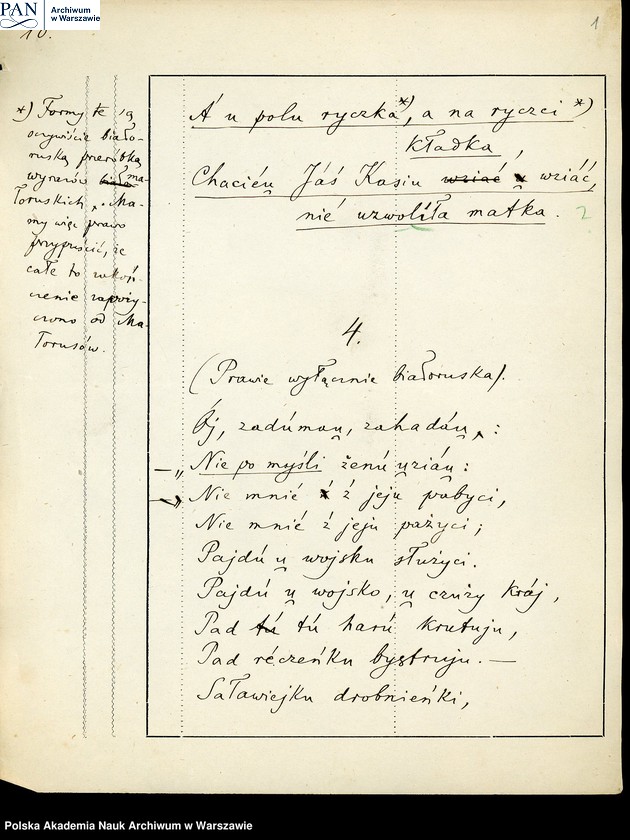 PAN
Archiwum
w Warszawie
10.
1
*) Formy te są
oczywiście biało-
ruską przeróbką
wyrazów biał ma-
łoruskich. Ma-
my więc prawo
przypuścić, że
całe to zakoń-
czenie zapoży-
czono od Ma-
łorusów.
Á u polu ryczka*), a na ryczci *)
kładka,
Chacieu̯ Jáś Kasiu wziać u̯ wziáć,
nié uzwoliła matka.
2
4.
(Prawie wyłącznie białoruska).
Ój, zadúmau̯, zahadáu̯:
— „ Nie po myśli żenú u̯ziáu̯:
— „ Nie mnié ź jeju pabyci,
Nie mnié ź jeju pażyci;
Pajdú u̯ wojsku służyci.
Pajdú u̯ wojsko, u̯ czuży kráj,
Pad tú tú harú krutuju,
Pad réczeńku bystruju. —
Saławiejku drobnieńki,
Polska Akademia Nauk Archiwum w Warszawie